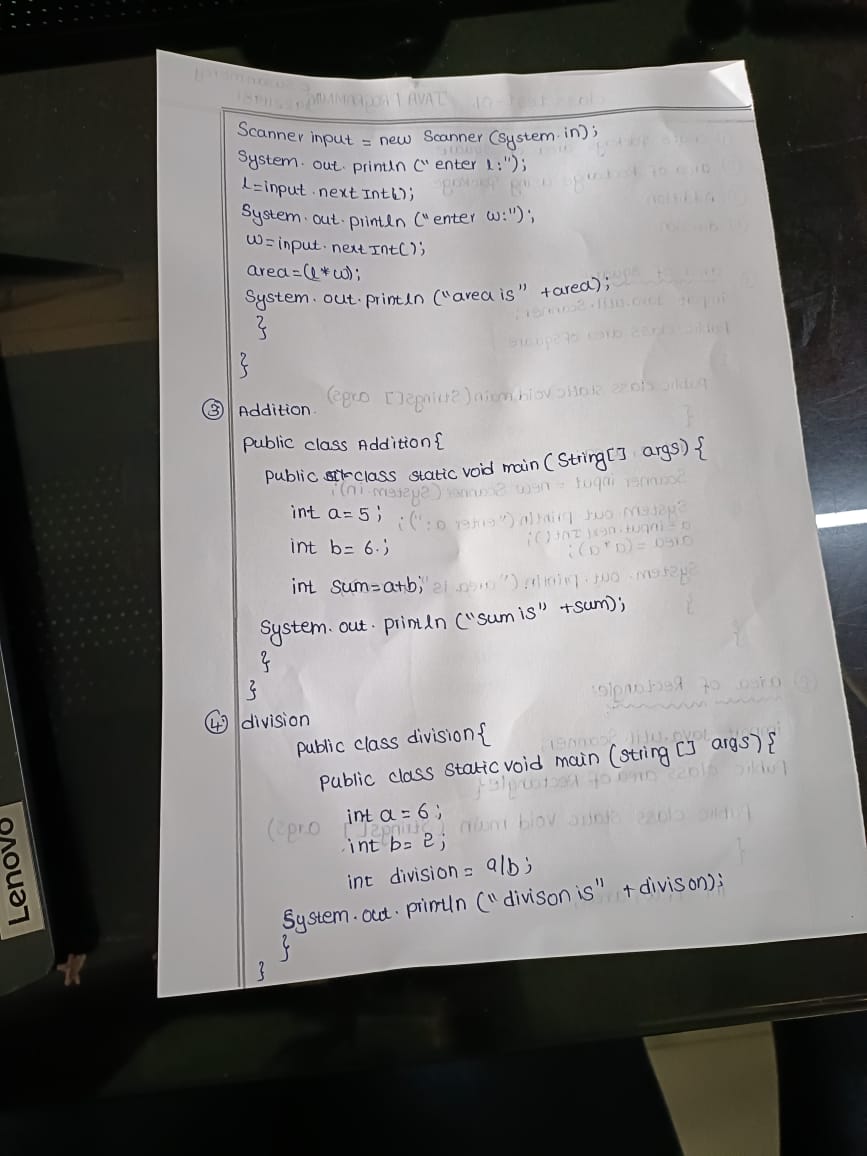 Scanner input = new Scanner (System.in);
System.out.println ("enter l:");
l=input.next Int();
System.out.println ("enter w:");
w=input.next Int();
area=(l*w);
System.out.println ("area is" +area);
}
}
③ Addition.
Public class Addition{
Public class static void main (String[] args) {
int a=5;
int b= 6.;
int sum=a+b;
System.out.println ("sum is" +sum);
}
}
④ division
Public class division{
Public class static void main (string [] args) {
int a = 6;
int b= 2;
int division = a/b;
System.out.println ("divison is" + divison);
}
}
Lenovo